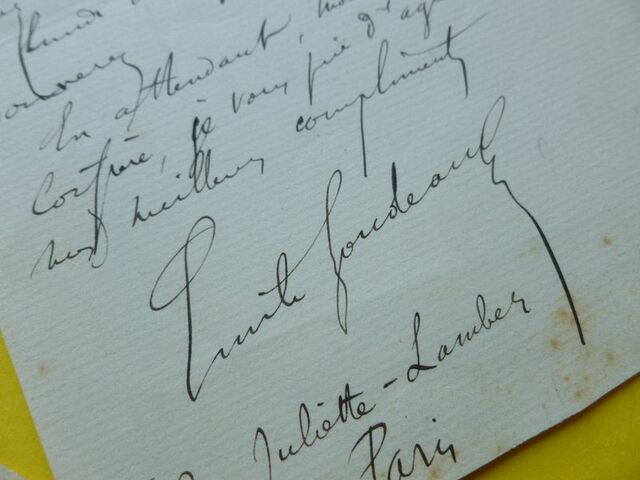 En attendant, mon
confrère, je vous prie d'ag
mes meilleurs compliments
Emile Goudeau
Juliette-Lamber
Paris